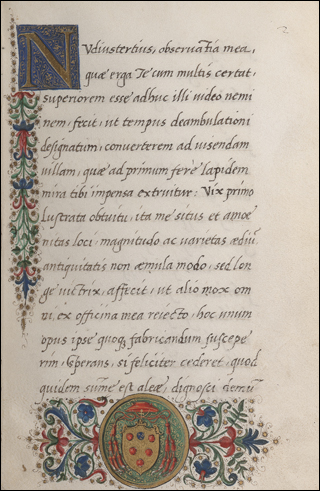 2
NVdiustertius, obseruātia mea,
quæ erga Te cum multis certat,
superiorem esse adhuc illi uideo nemi
nem, fecit, ut tempus deambulationi
designatum, conuerterem ad uisendam
uillam, quæ ad primum ferè lapidem
mira tibi impensa extruitur: Vix primo
lustrata obtuitu, ita me situs et amœ
nitas loci, magnitudo ac uarietas ædiū,
antiquitatis non æmula modo, sed lon
ge uictrix, affecit, ut alio mox om
ni, ex officina mea reiecto, hoc unum
opus ipse quoq; fabricandum suscepe
rim, Sperans, si feliciter cederet, quod
quidem sūme est aleæ, dignosci demū